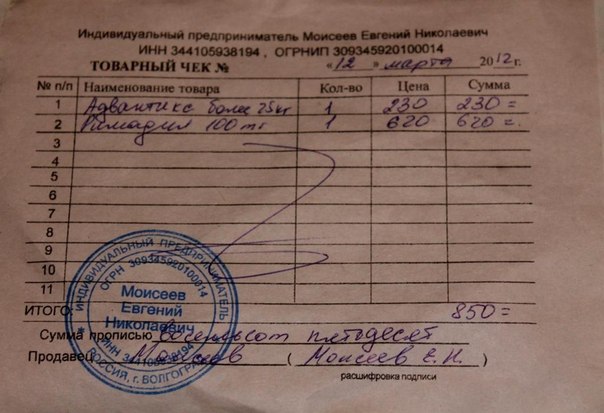 Индивидуальный предприниматель Моисеев Евгений Николаевич
ИНН 344105938194 , ОГРНИП 309345920100014
ТОВАРНЫЙ ЧЕК № «12» марта 2012г.
№ п/п Наименование товара Кол-во Цена Сумма
1 Адвантикс более 25кг 1 230 230=
2 Римадил 100 mг 1 620 620=
3
4
5
6
7
8
9
10
11
ИТОГО: 850=
Сумма прописью восемьсот пятьдесят
Продавец Моисеев ( Моисеев Е.Н. )
расшифровка подписи
ИНДИВИДУАЛЬНЫЙ ПРЕДПРИНИМАТЕЛЬ
ОГРН 309345920100014
Моисеев
Евгений
Николаевич
ИНН 344105938194
РОССИЯ, г. ВОЛГОГРАД